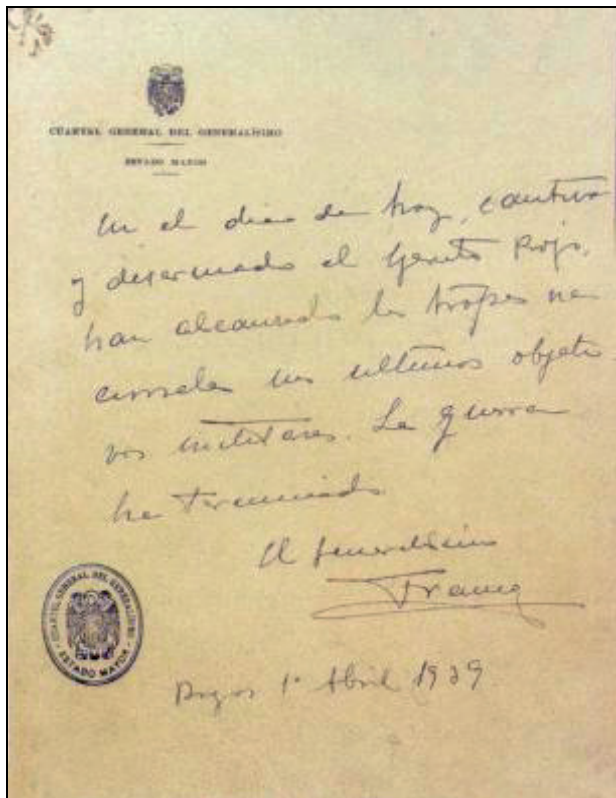 CUARTEL GENERAL DEL GENERALÍSIMO
ESTADO MAYOR
En el dia de hoy, cautivo
y desarmado el Ejercito Rojo,
han alcanzado las tropas na
cionales sus ultimos objeti
vos militares. La guerra
ha terminado.
El Generalisimo
Franco
CUARTEL GENERAL DEL GENERALÍSIMO
ESTADO MAYOR
Burgos 1º Abril 1939